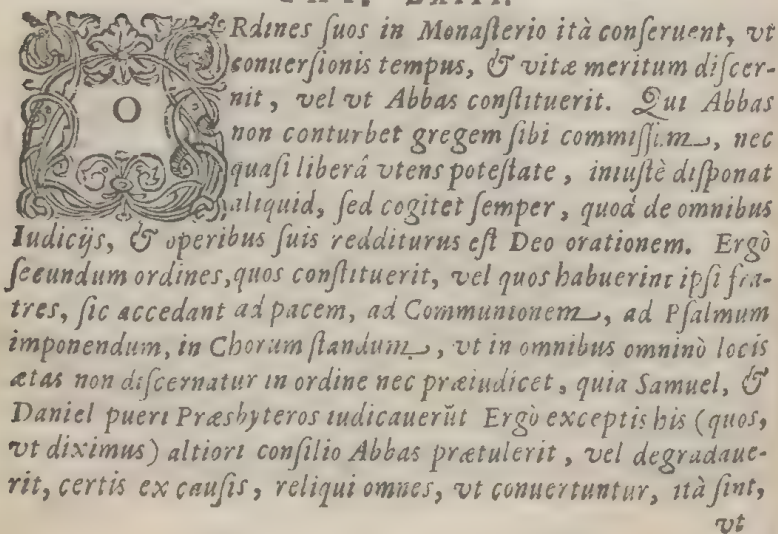 ORdines ſuos in Monaſterio ità conſeruent, vt
conuerſionis tempus, & vitæ meritum diſcer-
nit, vel vt Abbas conſtituerit. Qui Abbas
non conturbet gregem ſibi commiſſum, nec
quaſi liberâ vtens poteſtate, iniuſtè diſponat
aliquid, ſed cogitet ſemper, quod de omnibus
Iudicijs, & operibus ſuis redditurus eſt Deo orationem. Ergò
ſecundum ordines, quos conſtituerit, vel quos habuerint ipſi fra-
tres, ſic accedant ad pacem, ad Communionem, ad Pſalmum
imponendum, in Chorum ſtandum, vt in omnibus omninò locis
ætas non diſcernatur in ordine nec præiudicet, quia Samuel, &
Daniel pueri Præsbyteros iudicauerũt Ergò exceptis his (quos,
vt diximus) altiori conſilio Abbas prætulerit, vel degradaue-
rit, certis ex cauſis, reliqui omnes, vt conuertuntur, ità ſint,
vt